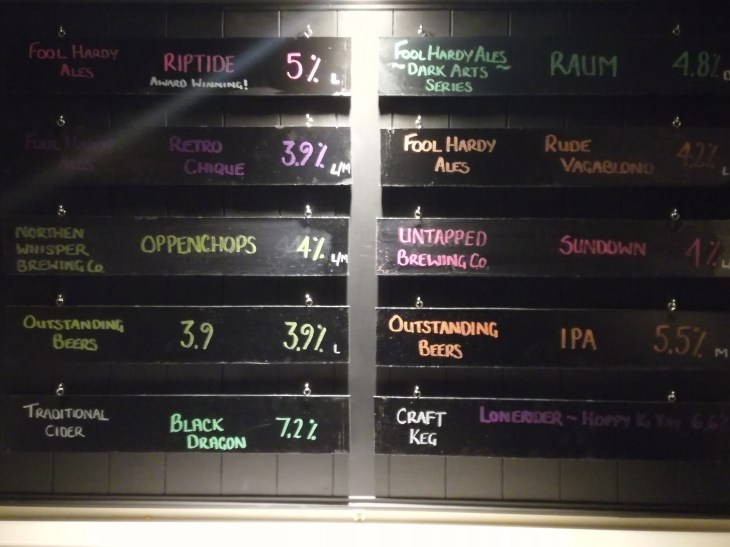 FOOL HARDY
ALES
RIPTIDE
AWARD WINNING!
5% L
FOOL HARDY
ALES
RETRO
CHIQUE
3.9% L/M
NORTHEN
WHISPER
BREWING CO.
OPPENCHOPS
4% L/M
OUTSTANDING
BEERS
3.9
3.9% L
TRADITIONAL
CIDER
BLACK
DRAGON
7.2%
FOOL HARDY ALES
~ DARK ARTS ~
SERIES
RAUM
4.8% D
FOOL HARDY
ALES
RUDE
VAGABLOND
4.2% L
UNTAPPED
BREWING CO
SUNDOWN
4%
OUTSTANDING
BEERS
IPA
5.5% M
CRAFT
KEG
LONERIDER ~ HOPPY